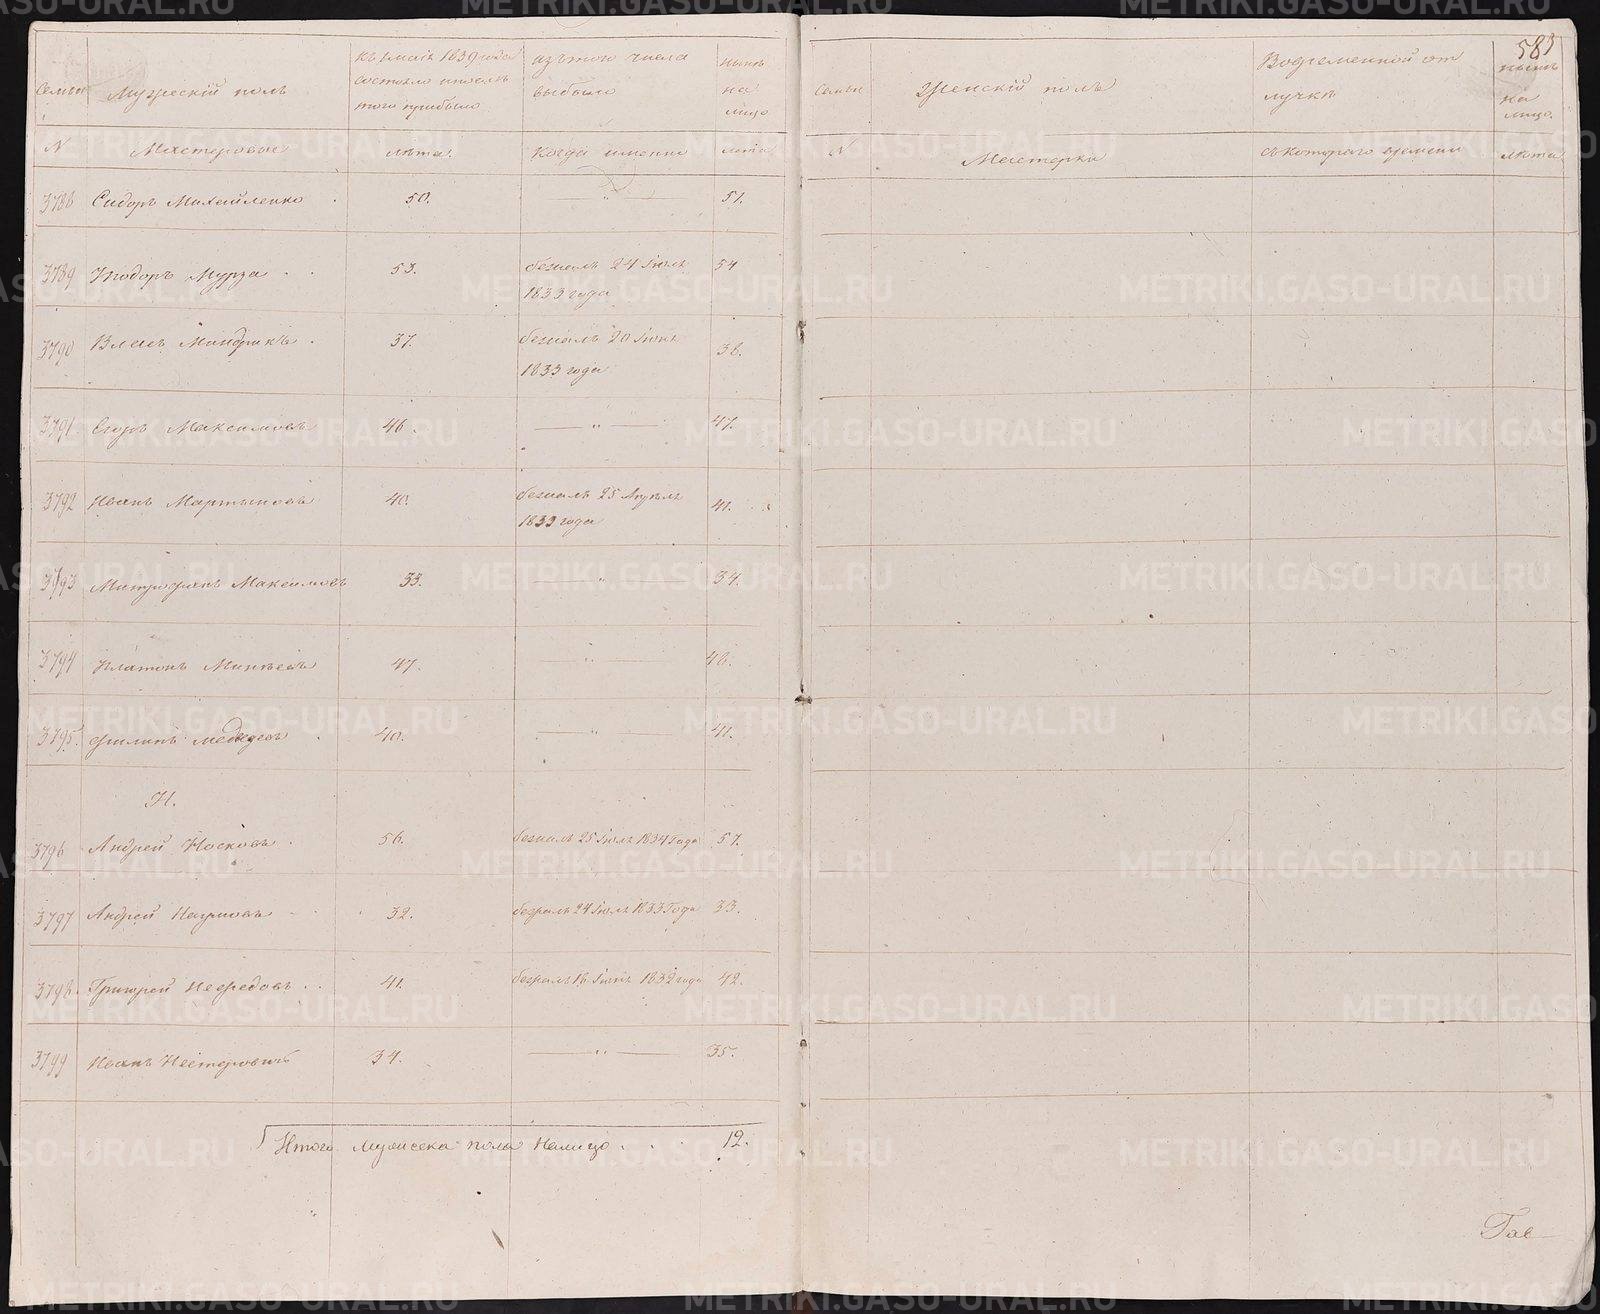 581
Семьи
Мужескій полъ
Къ 1 маія 1839 года
состояло и после
того прибыло
изътого числа
выбыло
Нынѣ
на
лицо
№
Мастеровые
лѣта.
Когда имянно
лѣта
3788 Сидоръ Михайленко . 50. — " — 51.
3789 Ѳиодоръ Мурза . . 53. бежалъ 24 Іюля 54
1833 года
3790 Власъ Миндрикъ . 37. бежалъ 20 Іюня 38.
1833 года
3791. Егоръ Максимовъ 46. — " — 47.
3792 Иванъ Мартыновъ 40. бежалъ 25 Апреля 41.
1833 года
3793 Митрофанъ Максимовъ 33. — " — 34.
3794 Платонъ Минѣевъ 47. " — 48.
3795. Филипъ Медведевъ . 40. — " — 41.
Н.
3796 Андрей Носковъ . 56. бежалъ 25 Іюля 1834 Года 57.
3797 Андрей Наумовъ 32. бежалъ 24 Іюля 1833 Года 33.
3798. Григорей Нефедовъ . . 41. бежалъ 16 Іюня 1832 года 42.
3799 Иванъ Нестеровичъ 34. — " — 35.
Итого мужеска пола налицо . . . 12.
Семьи
Женскій полъ
Вовременной от
лучкѣ
Нынѣ
на
лицо.
№
Мастерки
съкотораго времени
лѣта
Гав
METRIKI.GASO-URAL.RU